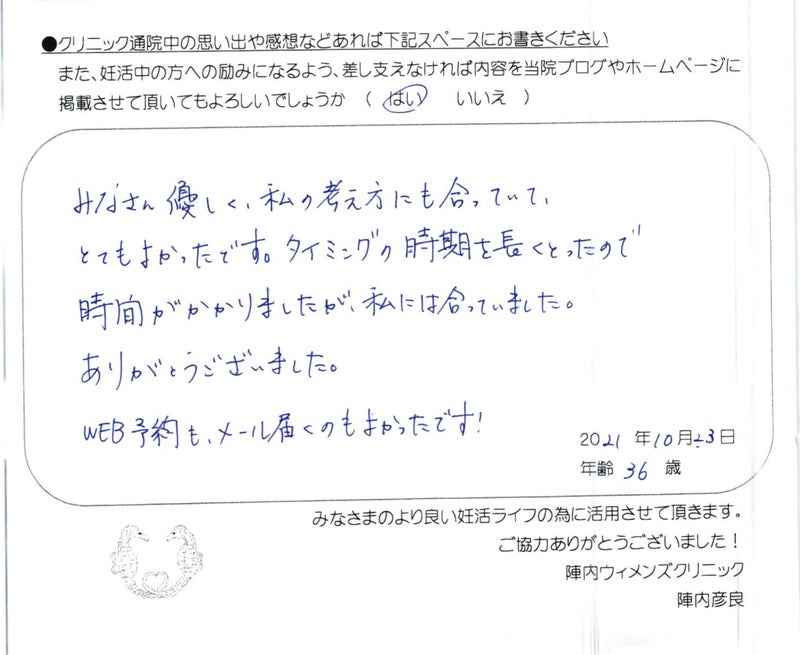 ●クリニック通院中の思い出や感想などあれば下記スペースにお書きください
また、妊活中の方への励みになるよう、差し支えなければ内容を当院ブログやホームページに
掲載させて頂いてもよろしいでしょうか （ はい いいえ ）
みなさん優しく、私の考え方にも合っていて、
とてもよかったです。タイミングの時期を長くとったので
時間がかかりましたが、私には合っていました。
ありがとうございました。
WEB予約も、メール届くのもよかったです!
2021 年 10 月 23 日
年齢 36 歳
みなさまのより良い妊活ライフの為に活用させて頂きます。
ご協力ありがとうございました！
陣内ウィメンズクリニック
陣内彦良